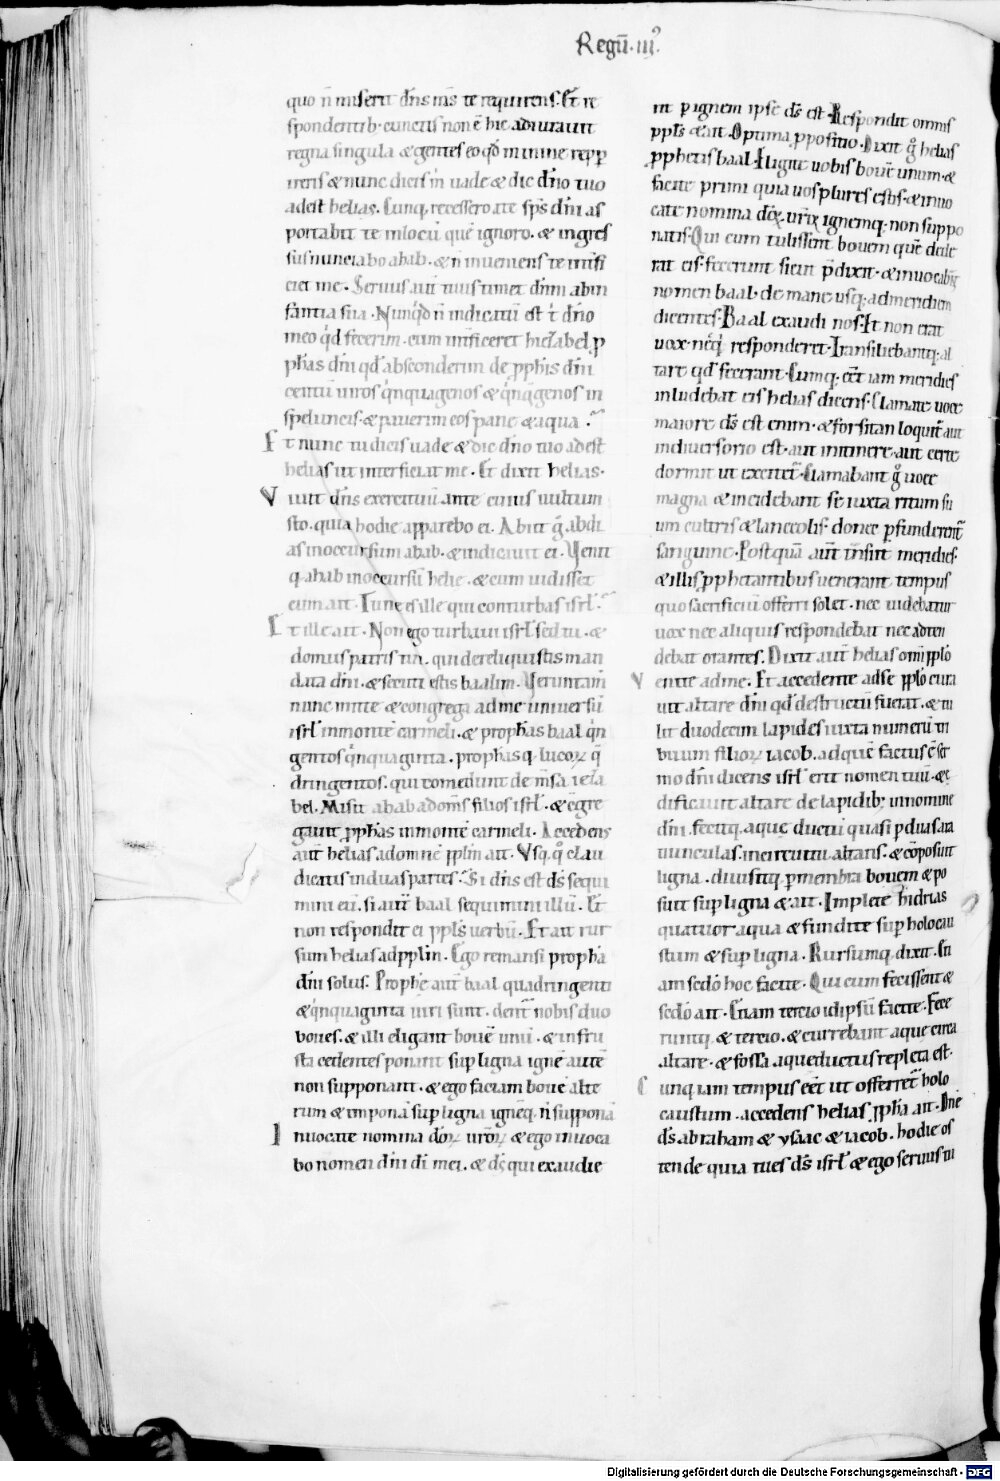 Regū. iii⁹.
quo n̄ miserit dn̄s ms̄ te requirens. Et re
spondentib. cunctis non ē hic adiurauit
regna singula & gentes eo qđ minime repp̱
ireris & nunc dicis m̄ uade & dic dn̄o tuo
adest helias. Cunq. recessero a te sp̄s dn̄i as
portabit te in locū quē ignoro. & ingres
sus nunciabo ahab. & n̄ inueniens te int̄fi
ciet me. Seruus aut̄ tuus timet dn̄m ab in
fantia sua. Nunqđ n̄ indicatū est t' dn̄o
meo qđ fecerim. cum int̄ficeret hiezabel p̱
phas dn̄i qđ absconderim de p̱phis dn̄i
centū uiros q'nquagenos & q'nq̄genos in
speluncis. & pauerim eos pane & aqua.
Et nunc tu dicis uade & dic dn̄o tuo adest
helias ut interficiat me. Et dixit helias.
Viuit dn̄s exercituū ante cuius uultum
sto. quia hodie apparebo ei. Abiit g̊ abdi
as in occursum ahab. & indicauit ei. Venit
q. ahab in occursū helie. & cum uidisset
eum ait. Tune es ille qui conturbas isrl̄.
Et ille ait. Non ego turbaui isrl̄ sed tu. &
domus patris tui. qui dereliquistis man
data dn̄i. & secuti estis baalim. Veruntam̄
nunc mitte & congrega ad me uniuersū
isrl̄ in monte carmeli. & prophas baal q'n
gentos q'nquaginta. prophas q. lucoꝝ q̄
dringentos. qui comedunt de m̄sa ieza
bel. Misit ahab ad om̄s filios isrl̄. & egre
gauit p̱phas in monte carmeli. Accedens
aut̄ helias ad omnē pplm̄ ait. Vsq. q̊ clau
dicatis in duas partes. Si dn̄s est ds̄ sequi
mini eū. si aut̄ baal sequimini illū. Et
non respondit ei ppls̄ uerbū. Et ait rur
sum helias ad pplm̄. Ego remansi propha
dn̄i solus. Prophe aut̄ baal quadringenti
& q'nquaginta uiri sunt. dent̄ nobis duo
boues. & illi eligant bouē unū. & in fru
sta cedentes ponant sup̱ ligna ignē autē
non supponant. & ego faciam bouē alte
rum & imponā sup̱ ligna ignēq. n̄ supponā
Inuocate nomina dōꝝ urōꝝ & ego inuoca
bo nomen dn̄i di mei. & ds̄ qui exaudie
rit p̱ ignem ipse ds̄ est. Respondit omnis
ppls̄ & ait. Optima p̱positio. Dixit g̊ helias
p̱phetis baal. Eligite uobis bouē unum. &
facite primi quia uos plures estis. & inuo
cate nomina dōꝝ. ur̄ꝝ ignemq. non suppo
natis. Qui cum tulissent bouem quē dede
rat eis. fecerunt sicut p̄dixit. & inuocabāt
nomen baal. de mane usq; ad meridiem
dicentes. Baal exaudi nos. Et non erat
uox. neq' responderet. Transiliebantq; al
tare qđ fecerant. Cumq; eēt iam meridies
inludebat eis helias dicens. Clamate uoce
maiore ds̄ est enim. & forsitan loquit̄ aut
in diuersorio est. aut in itinere. aut certe
dormit ut excitet̄. Clamabant g̊ uoce
magna & incidebant se iuxta ritum su
um cultris & lanceolis. donec p̱funderent̄
sanguine. Postquā aut̄ t̄nsiit meridies.
& illis p̱phetantibus uenerant tempus
quo sacrificiū offerri solet. nec uidebatur
uox nec aliquis respondebat nec adten
debat orantes. Dixit aut̄ helias omi pplo
Venite ad me. Et accedente ad se pplo cura
uit altare dn̄i qđ destructū fuerat. & tu
lit duodecim lapides iuxta numerū tri
buum filioꝝ iacob. ad quē factus ē ser
mo dn̄i dicens isrl̄ erit nomen tuū. & e
dificauit altare de lapidib; in nomine
dn̄i. fecitq. aque ductū quasi p̱ duas ara
tiunculas. in circuitu altaris. & cōposuit
ligna. diuisitq. p̱ membra bouem & po
suit sup̱ ligna & ait. Implete hidrias
quatuor aqua & fundite sup̱ holocau
stum & sup̱ ligna. Rursumq. dixit. Eti
am sedō hoc facite. Qui cum fecissent &
sedō ait. Etiam tercio idipsū facite. Fece
runtq. & tercio. & currebant aque circa
altare. & fossa aqueductus repleta est.
Cunq. iam tempus eēt ut offerret̄ holo
caustum. accedens helias p̱pha ait. Dn̄e
ds̄ abraham & ysaac & iacob. hodie os
tende quia tu es ds̄ isrl̄ & ego seruus tu
Digitalisierung gefördert durch die Deutsche Forschungsgemeinschaft - DFG